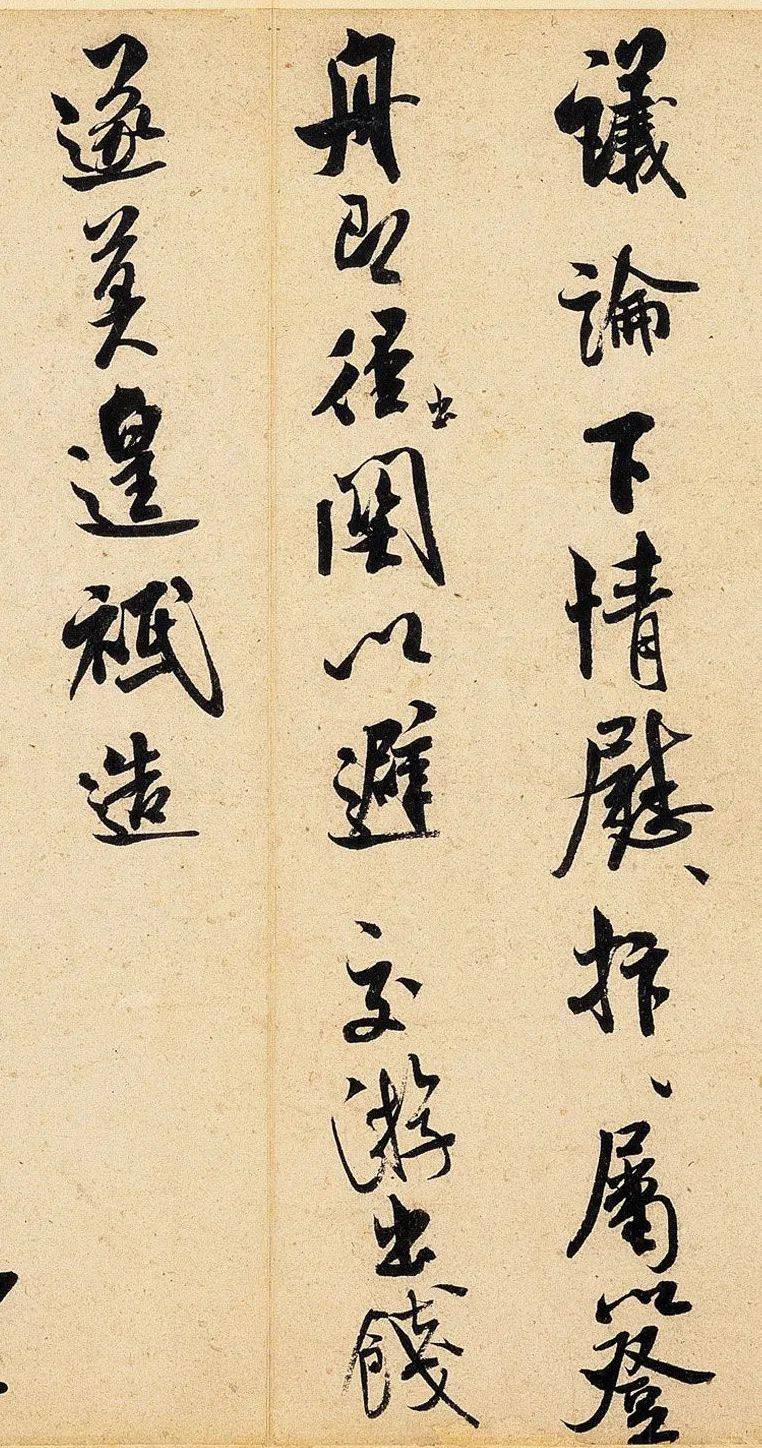 議論下情慰、抃、屬以登
舟即徑出關以避 交游出餞
遂莫遑祗造